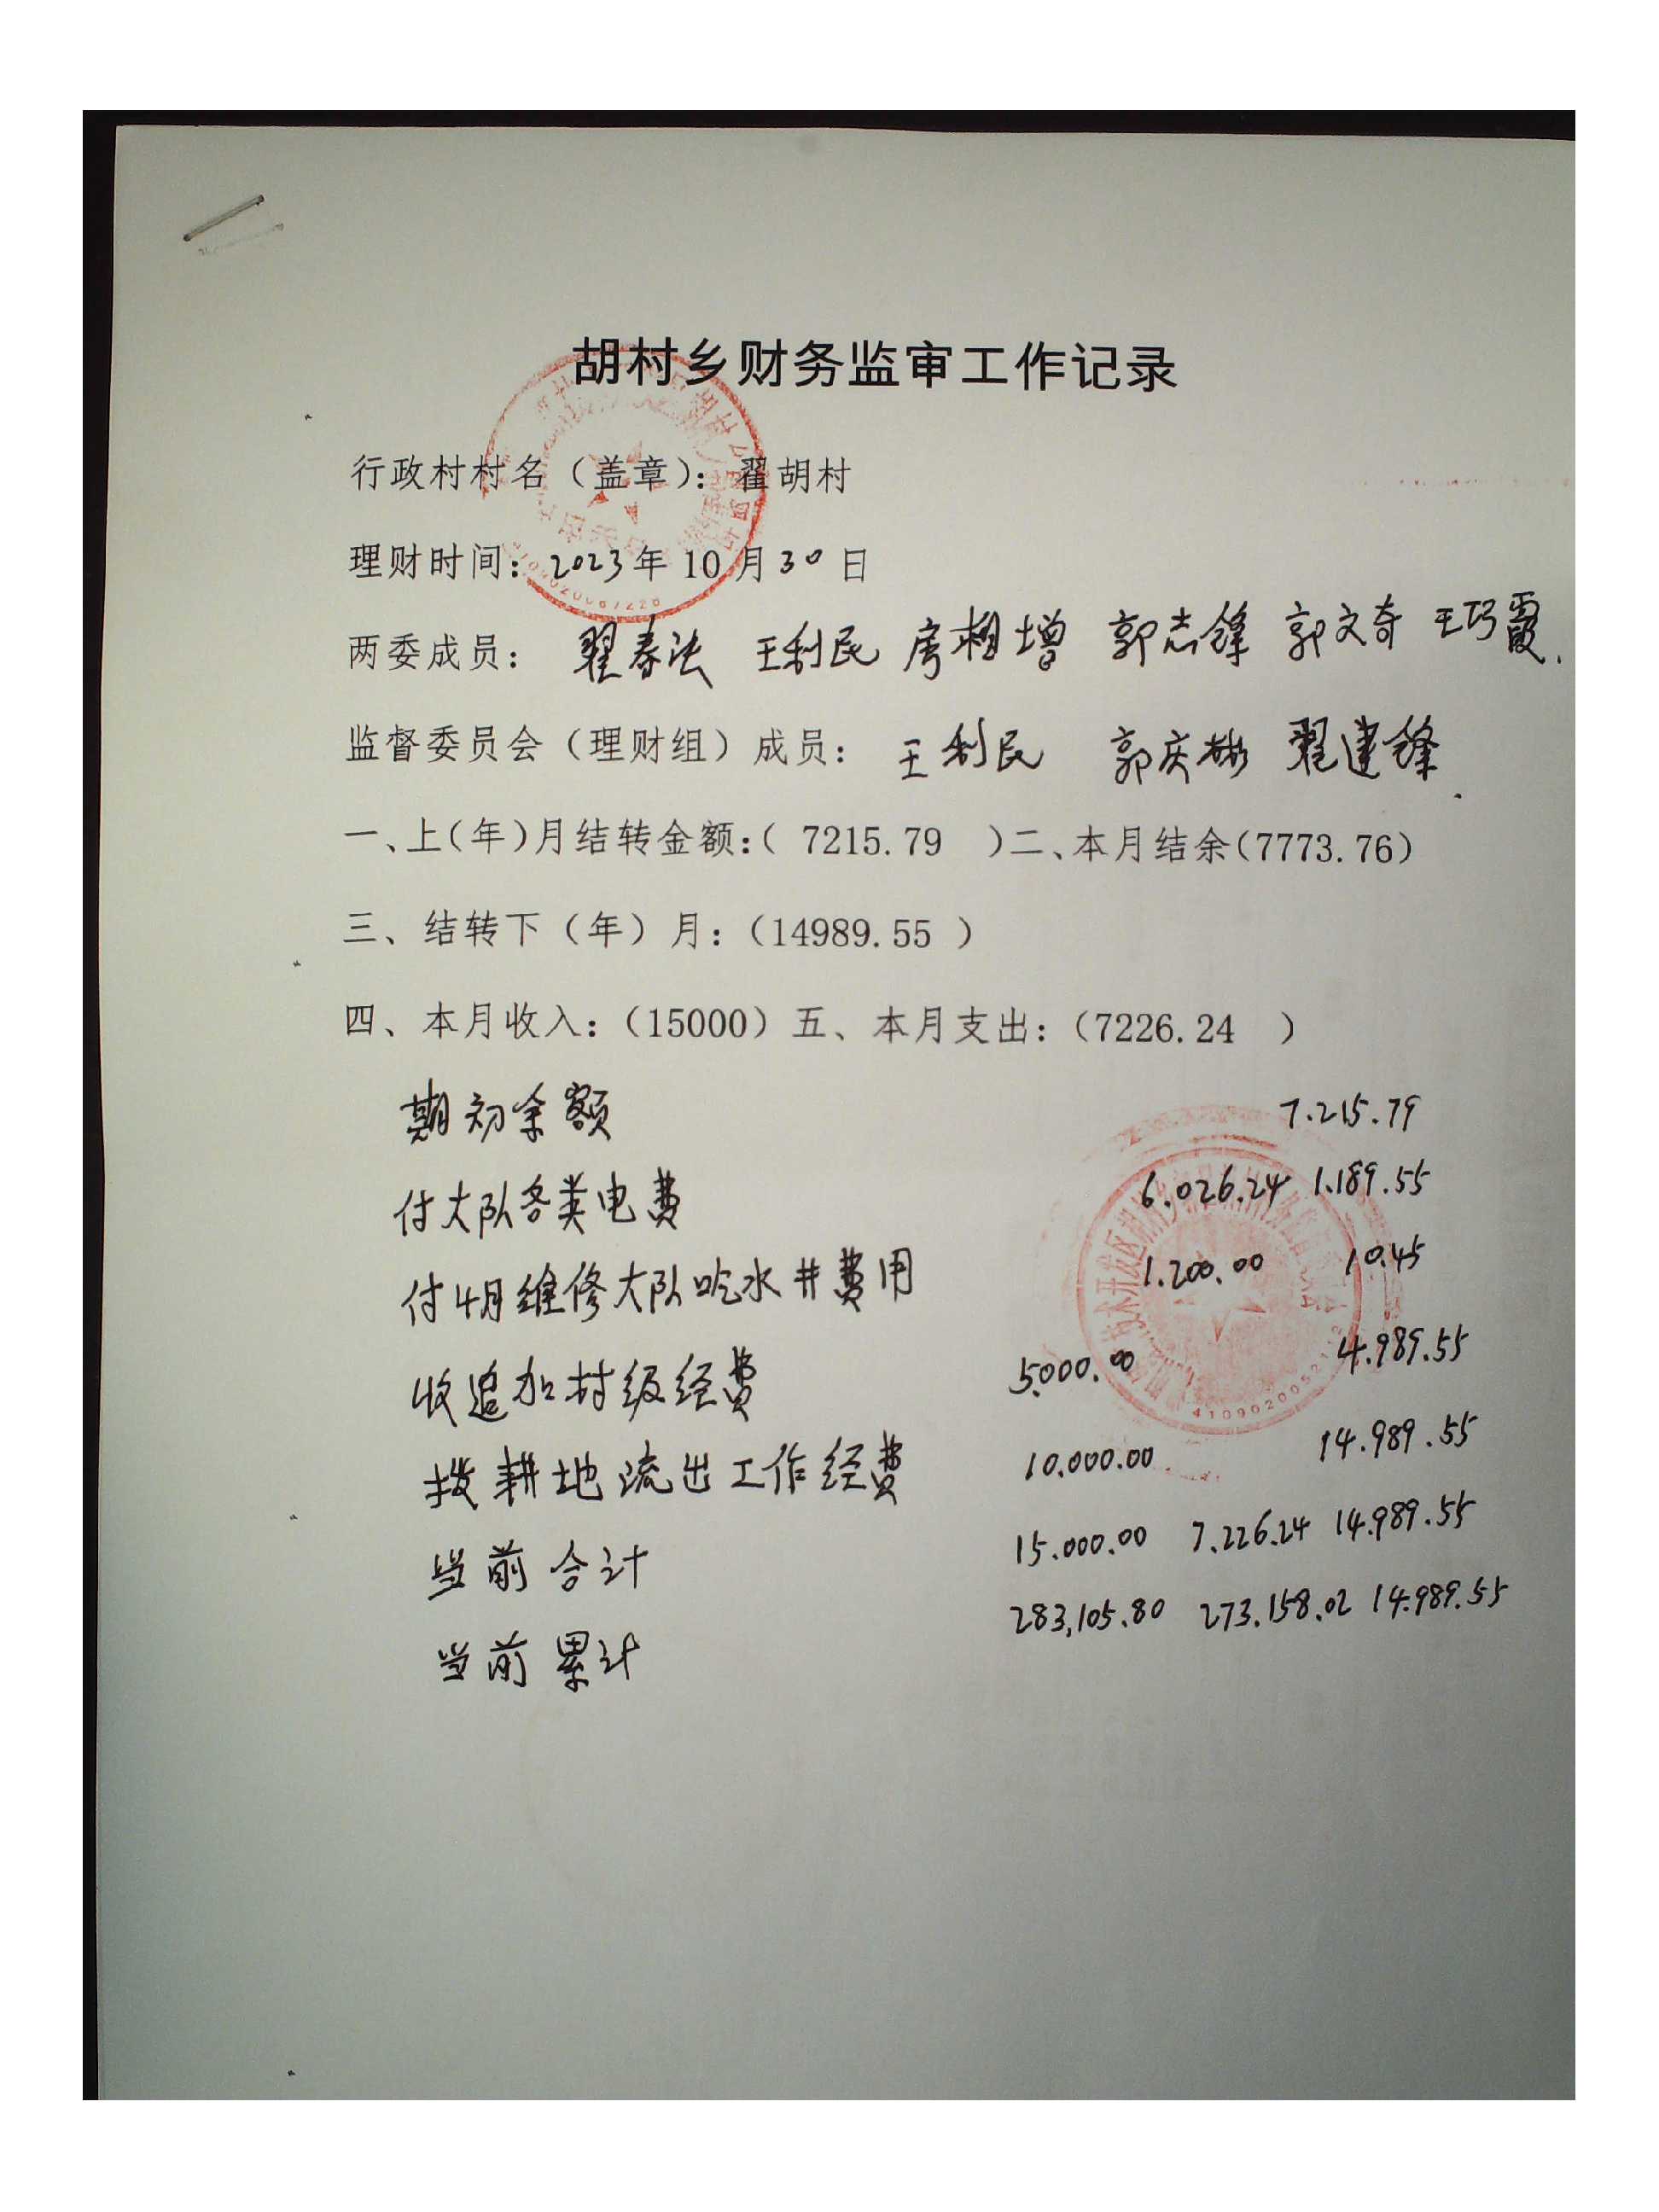 胡村乡财务监审工作记录
行政村村名（盖章）：翟胡村
理财时间：2023年10月30日
两委成员： 翟春法 王利民 房相增 郭志锋 郭文奇 王巧霞.
监督委员会（理财组）成员： 王利民 郭庆彬 翟建锋
一、上(年)月结转金额:( 7215.79 )二、本月结余(7773.76)
三、结转下（年）月:（14989.55 ）
四、本月收入:（15000）五、本月支出:（7226.24 ）
期初余额 7.215.79
付大队各类电费 6.026.24 1.189.55
付4月维修大队吃水井费用 1.200.00 10.45
收追加村级经费 5.000.00 4.989.55
拨耕地流出工作经费 10.000.00 14.989.55
当前合计 15.000.00 7.226.24 14.989.55
当前累计 283,105.80 273.158.02 14.989.55